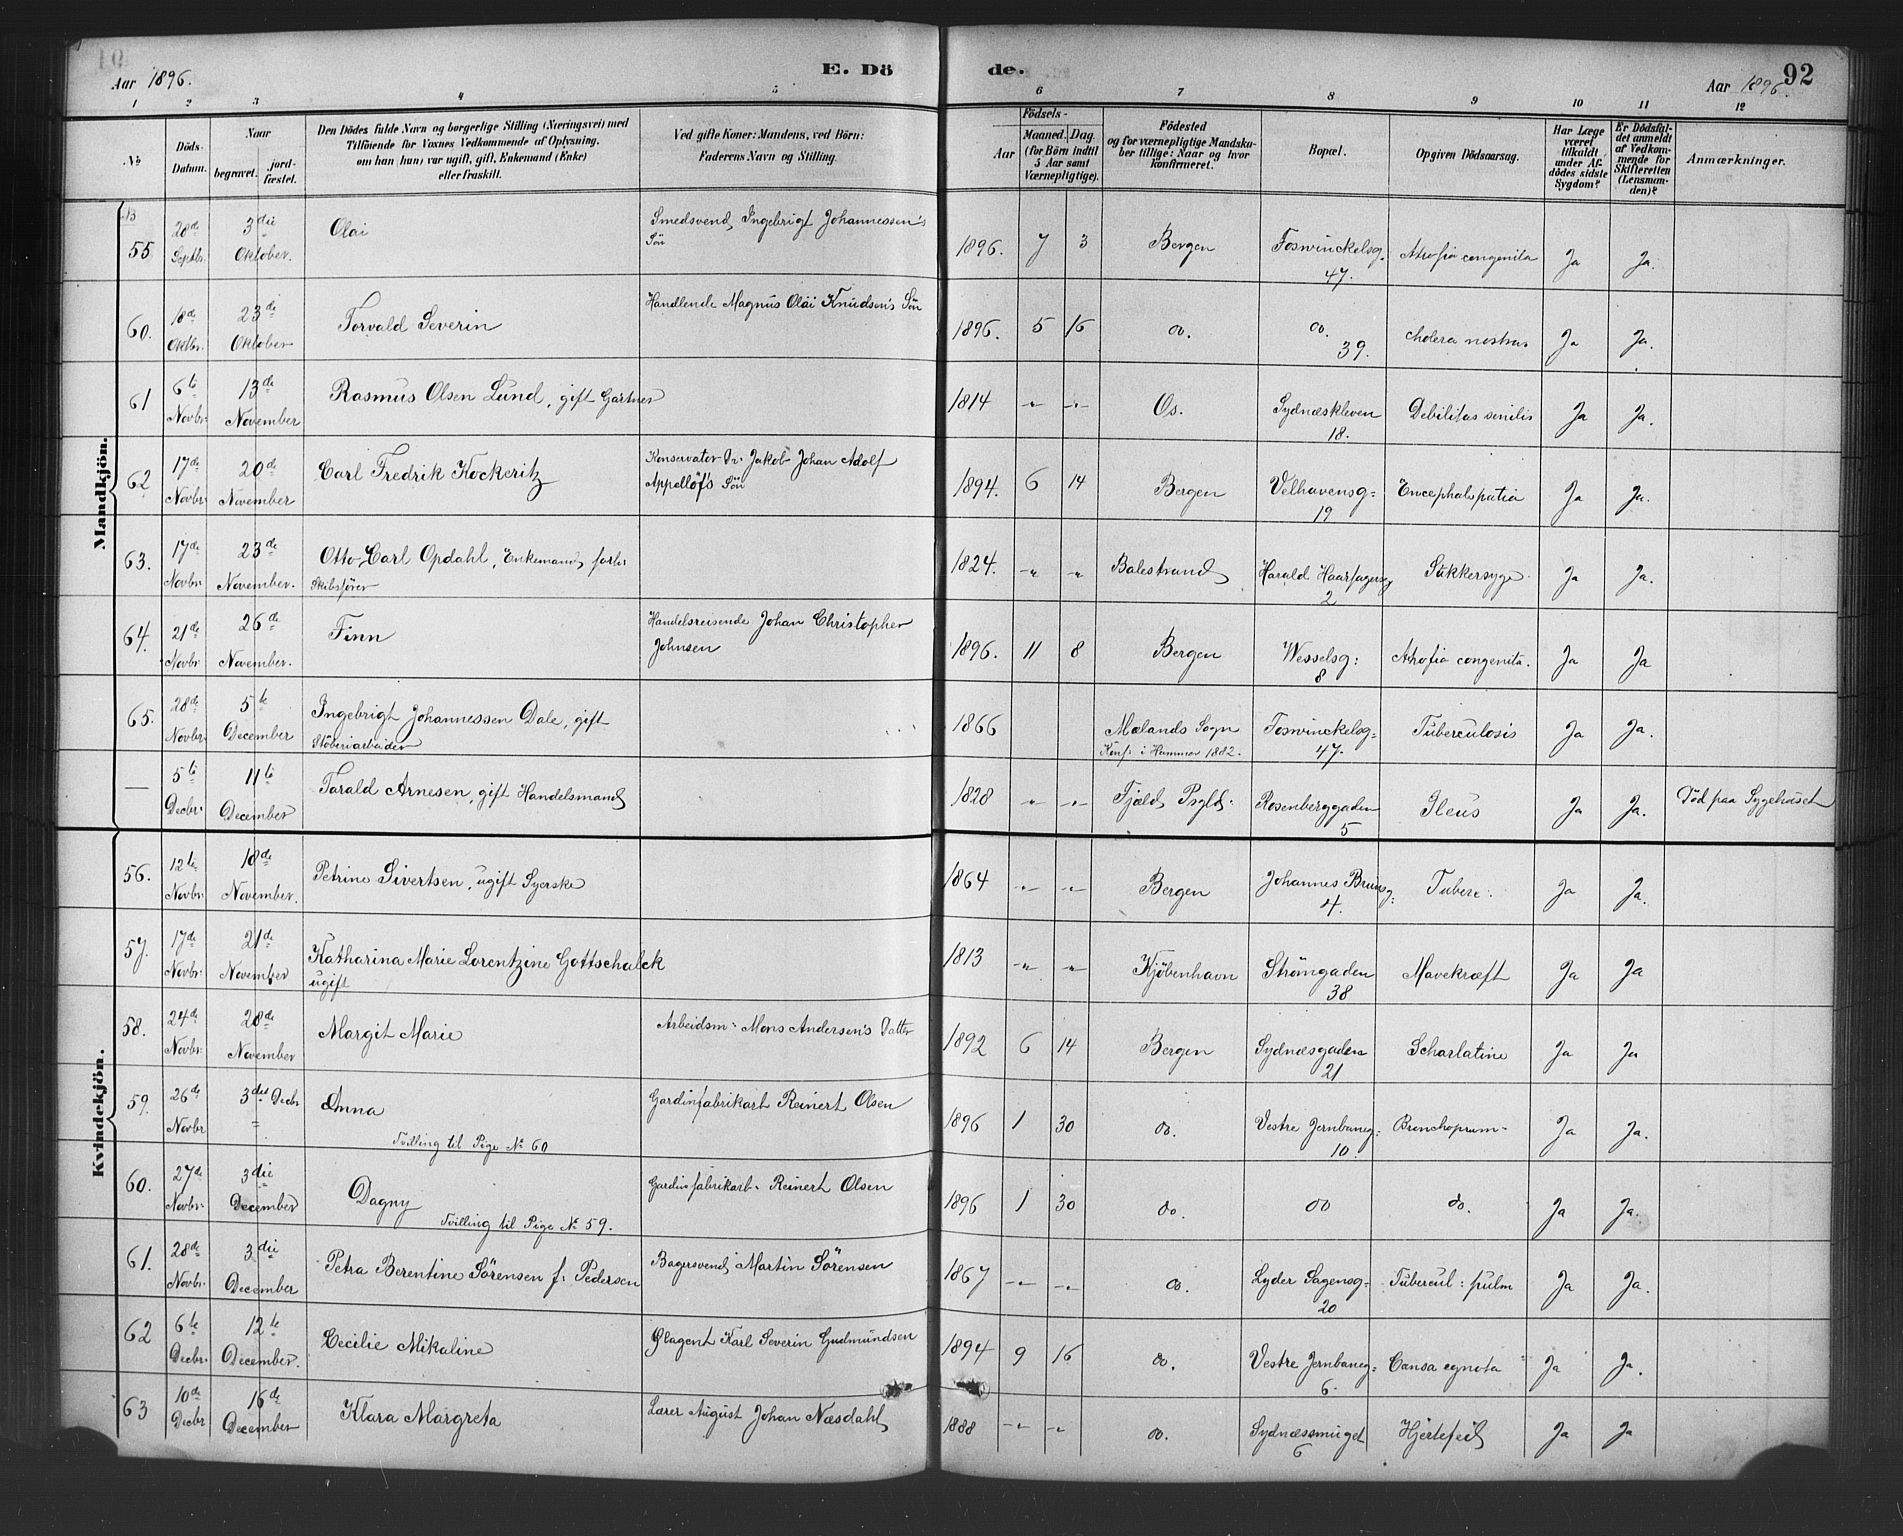 Aar 1896.
E. Dö de.
Aar 1896.
92
1 2 3 4 5 6 7 8 9 10 11 12
No
Döds-Datum.
Naar
begravet.
jord-fæstet.
Den Dödes fulde Navn og borgerlige Stilling (Næringsvei) med
Tilföiende for Voxnes Vedkommende af Oplysning,
om han (hun) var ugift, gift, Enkemand (Enke)
eller fraskilt.
Ved gifte Koner: Mandens, ved Börn:
Faderens Navn og Stilling.
Födsels-
Aar
Maaned. Dag.
(for Börn indtil
5 Aar samt
Værnepligtige).
Födested
og for værnepligtige Mandska-
ber tillige: Naar og hvor
konfirmeret.
Bopæl.
Opgiven Dödsaarsag.
Har Læge
været
tilkaldt
under Af-
dödes sidste
Sygdom?
Er Dödsfal-
det anmeldt
af Vedkom-
mende for
Skifteretten
(Lensman-
den)?
Anmærkninger.
Mandkjön.
55. 28de Septbr. 3die Oktober. Olai Smedsvend Ingebrigt Johannessen's Sön 1896. 7 3 Bergen Foswinckelsg. 47. Atrofia congenita Ja Ja.
60. 18de Oktbr. 23de Oktober Torvald Severin Handlende Magnus Olai Knudsen's Sön 1896. 5 16 do. do. 39. cholera nostras Ja Ja.
61 6te Novbr. 13de November Rasmus Olsen Lund, gift Gartner 1814 -"- -"- Os. Sydnæskleven 18. Debilitas senilis Ja Ja.
62 17de Novbr. 20de November Carl Fredrik Kockeritz Konservator Dr. Jakob Johan Adolf Appellöf's Sön 1894. 6 14 Bergen Velhavensg: 19 Encephalopatia Ja Ja.
63. 17de Novbr. 23de November. Otto Carl Opdahl, Enkemand, forhv. Skibsfører 1824. -"- -"- Balestrand Harald Haarfagersg 2 Sukkersyge Ja Ja.
64. 21de Novbr 26de November. Finn Handelsreisende Johan Christopher Johnsen 1896. 11 8 Bergen Wesselsg: 8 Atrofia congenita. Ja Ja
65. 28de Novbr. 5te December Ingebrigt Johannessen Dale, gift Stöberiarbeider 1866 Mælands Sogn Konf: i Hammer 1882. Foswinckelsg: 47. Tuberculosis Ja Ja.
— 5te Decbr. 11te December Tarald Arnesen, gift Handelsmand 1828 -"- -"- Fjæld Psgld: Rosenberggaden 5 Ileus Ja Ja. Död paa Sygehuset
Kvindekjön.
56. 12te Novbr. 18de November. Petrine Sivertsen, ugift Syerske 1864 -"- -"- Bergen Johannes Brunsg: 4. Tuberc: Ja Ja.
57. 17de Novbr. 21de November Katharina Marie Lorentzine Gottschalck ugift 1813 -"- -"- Kjöbenhavn Strömgaden 38 Mavekræft Ja Ja
58. 24de Novbr. 28de November Margit Marie Arbeidsm: Mons Andersen's Datter 1892 6 14 Bergen Sydnæsgaden 21 Scharlatine Ja Ja
59. 26de Novbr 3die Decbr = Anna Tvilling til Pige No 60 Gardinfabrikant Reinert Olsen 1896 1 30 do. Vestre Jernbaneg: 10. Bronchopnum- Ja Ja.
60. 27de Novbr. 3die December Dagny Tvilling til Pige No 59. Gardinfabrikant. Reinert Olsen 1896 1 30 do. do do. Ja Ja.
61. 28de Novbr. 3die December Petra Berentine Sörensen f: Pedersen Bagersvend Martin Sörensen 1867 -"- -"- do. Lyder Sagensg: 20 Tubercul: pulm Ja Ja.
62 6te Decbr. 12te December. Cecilie Mikaline Ølagent Karl Severin Gudmundsen 1894 9 16 do. Vestre Jernbaneg: 6. Causa egnota Ja Ja.
63 10de Decbr 16de December Klara Margreta Lærer August Johan Næsdahl 1888 -"- -"- do. Sydnæssmuget 6 Hjertefeil Ja Ja